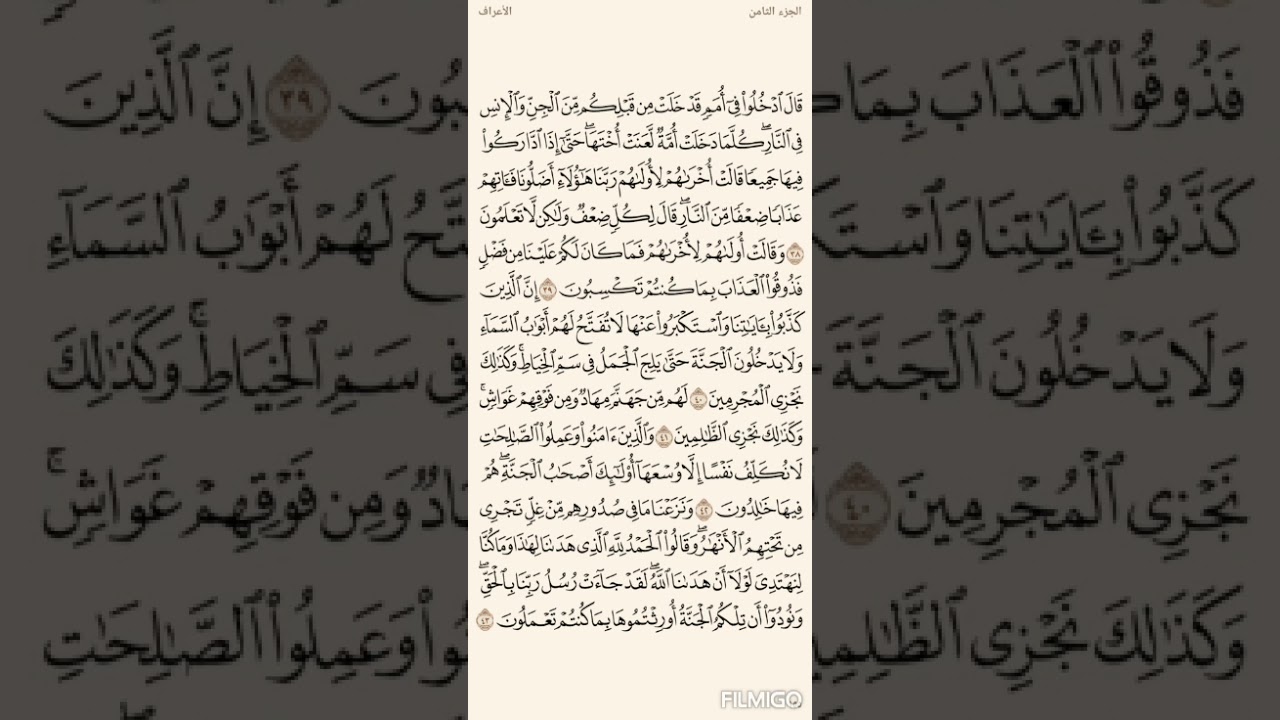 الجزء الثامن
الأعراف
قَالَ ٱدْخُلُوا۟ فِىٓ أُمَمٍ قَدْ خَلَتْ مِن قَبْلِكُم مِّنَ ٱلْجِنِّ وَٱلْإِنسِ
فِى ٱلنَّارِ ۖ كُلَّمَا دَخَلَتْ أُمَّةٌ لَّعَنَتْ أُخْتَهَا ۖ حَتَّىٰٓ إِذَا ٱدَّارَكُوا۟
فِيهَا جَمِيعًا قَالَتْ أُخْرَىٰهُمْ لِأُولَىٰهُمْ رَبَّنَا هَـٰٓؤُلَآءِ أَضَلُّونَا فَـَٔاتِهِمْ
عَذَابًا ضِعْفًا مِّنَ ٱلنَّارِ ۖ قَالَ لِكُلٍّ ضِعْفٌ وَلَـٰكِن لَّا تَعْلَمُونَ
٣٨ وَقَالَتْ أُولَىٰهُمْ لِأُخْرَىٰهُمْ فَمَا كَانَ لَكُمْ عَلَيْنَا مِن فَضْلٍ
فَذُوقُوا۟ ٱلْعَذَابَ بِمَا كُنتُمْ تَكْسِبُونَ ٣٩ إِنَّ ٱلَّذِينَ
كَذَّبُوا۟ بِـَٔايَـٰتِنَا وَٱسْتَكْبَرُوا۟ عَنْهَا لَا تُفَتَّحُ لَهُمْ أَبْوَٰبُ ٱلسَّمَآءِ
وَلَا يَدْخُلُونَ ٱلْجَنَّةَ حَتَّىٰ يَلِجَ ٱلْجَمَلُ فِى سَمِّ ٱلْخِيَاطِ ۚ وَكَذَٰلِكَ
نَجْزِى ٱلْمُجْرِمِينَ ٤٠ لَهُم مِّن جَهَنَّمَ مِهَادٌ وَمِن فَوْقِهِمْ غَوَاشٍ ۚ
وَكَذَٰلِكَ نَجْزِى ٱلظَّـٰلِمِينَ ٤١ وَٱلَّذِينَ ءَامَنُوا۟ وَعَمِلُوا۟ ٱلصَّـٰلِحَـٰتِ
لَا نُكَلِّفُ نَفْسًا إِلَّا وُسْعَهَآ أُو۟لَـٰٓئِكَ أَصْحَـٰبُ ٱلْجَنَّةِ ۖ هُمْ
فِيهَا خَـٰلِدُونَ ٤٢ وَنَزَعْنَا مَا فِى صُدُورِهِم مِّنْ غِلٍّ تَجْرِى
مِن تَحْتِهِمُ ٱلْأَنْهَـٰرُ ۖ وَقَالُوا۟ ٱلْحَمْدُ لِلَّهِ ٱلَّذِى هَدَىٰنَا لِهَـٰذَا وَمَا كُنَّا
لِنَهْتَدِىَ لَوْلَآ أَنْ هَدَىٰنَا ٱللَّهُ ۖ لَقَدْ جَآءَتْ رُسُلُ رَبِّنَا بِٱلْحَقِّ ۖ
وَنُودُوٓا۟ أَن تِلْكُمُ ٱلْجَنَّةُ أُورِثْتُمُوهَا بِمَا كُنتُمْ تَعْمَلُونَ ٤٣
FILMIGO